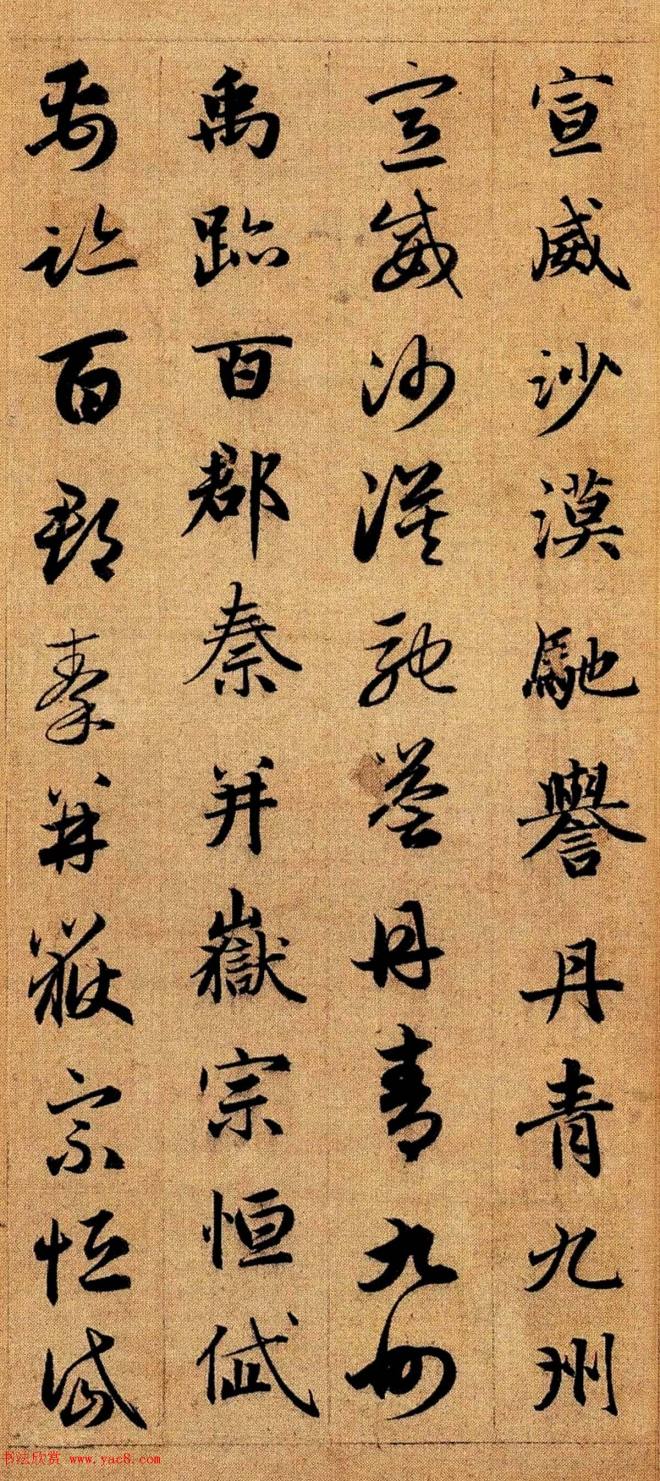 宣威沙漠馳譽丹青九州
宣威沙漠馳譽丹青九州
禹跡百郡秦并嶽宗恒岱
禹跡百郡秦并嶽宗恒岱
书法欣赏 www.yac8.com